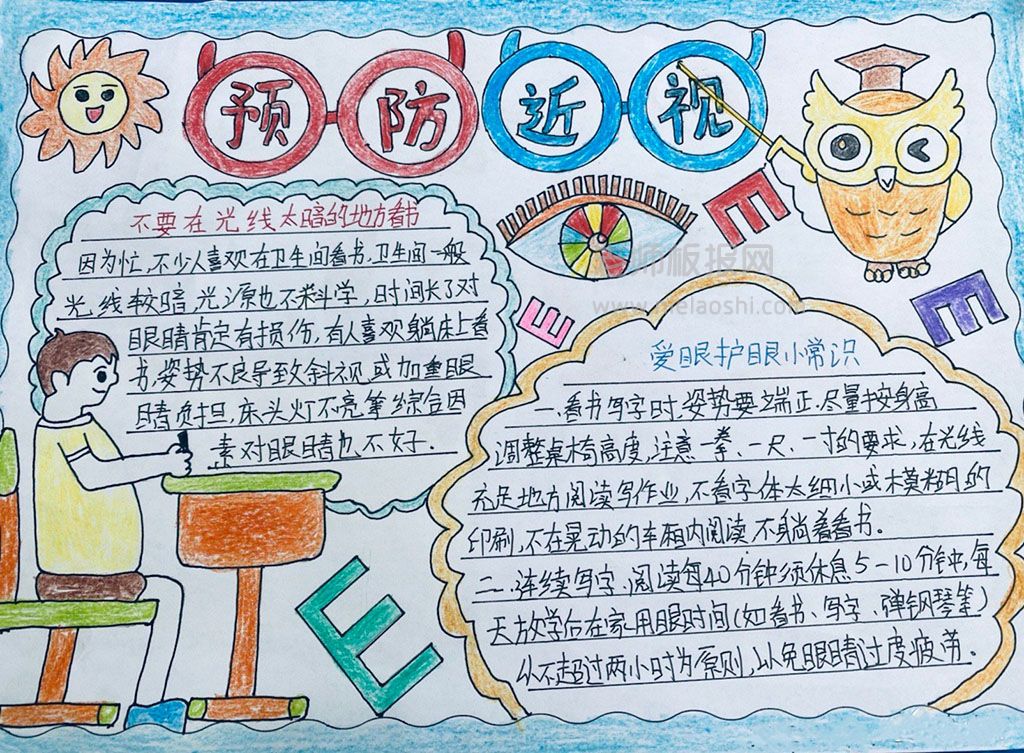 预防近视
不要在光线太暗的地方看书
因为忙,不少人喜欢在卫生间看书.卫生间一般
光线较暗,光源也不科学,时间长了对
眼睛肯定有损伤,有人喜欢躺床上看
书,姿势不良导致斜视或加重眼
睛负担,床头灯不亮等综合因
素对眼睛也不好.
E
E
E
E
师板报网
www.
laoshi.com
爱眼护眼小常识
一、看书写字时,姿势要端正,尽量按身高
调整桌椅高度,注意一拳、一尺、一寸的要求,在光线
充足地方阅读写作业,不看字体太细小或模糊的
印刷,不在晃动的车厢内阅读,不躺着看书.
二、连续写字、阅读每40分钟须休息5-10分钟,每
天放学后在家用眼时间(如看书、写字、弹钢琴等)
从不超过两小时为原则,以免眼睛过度疲劳.